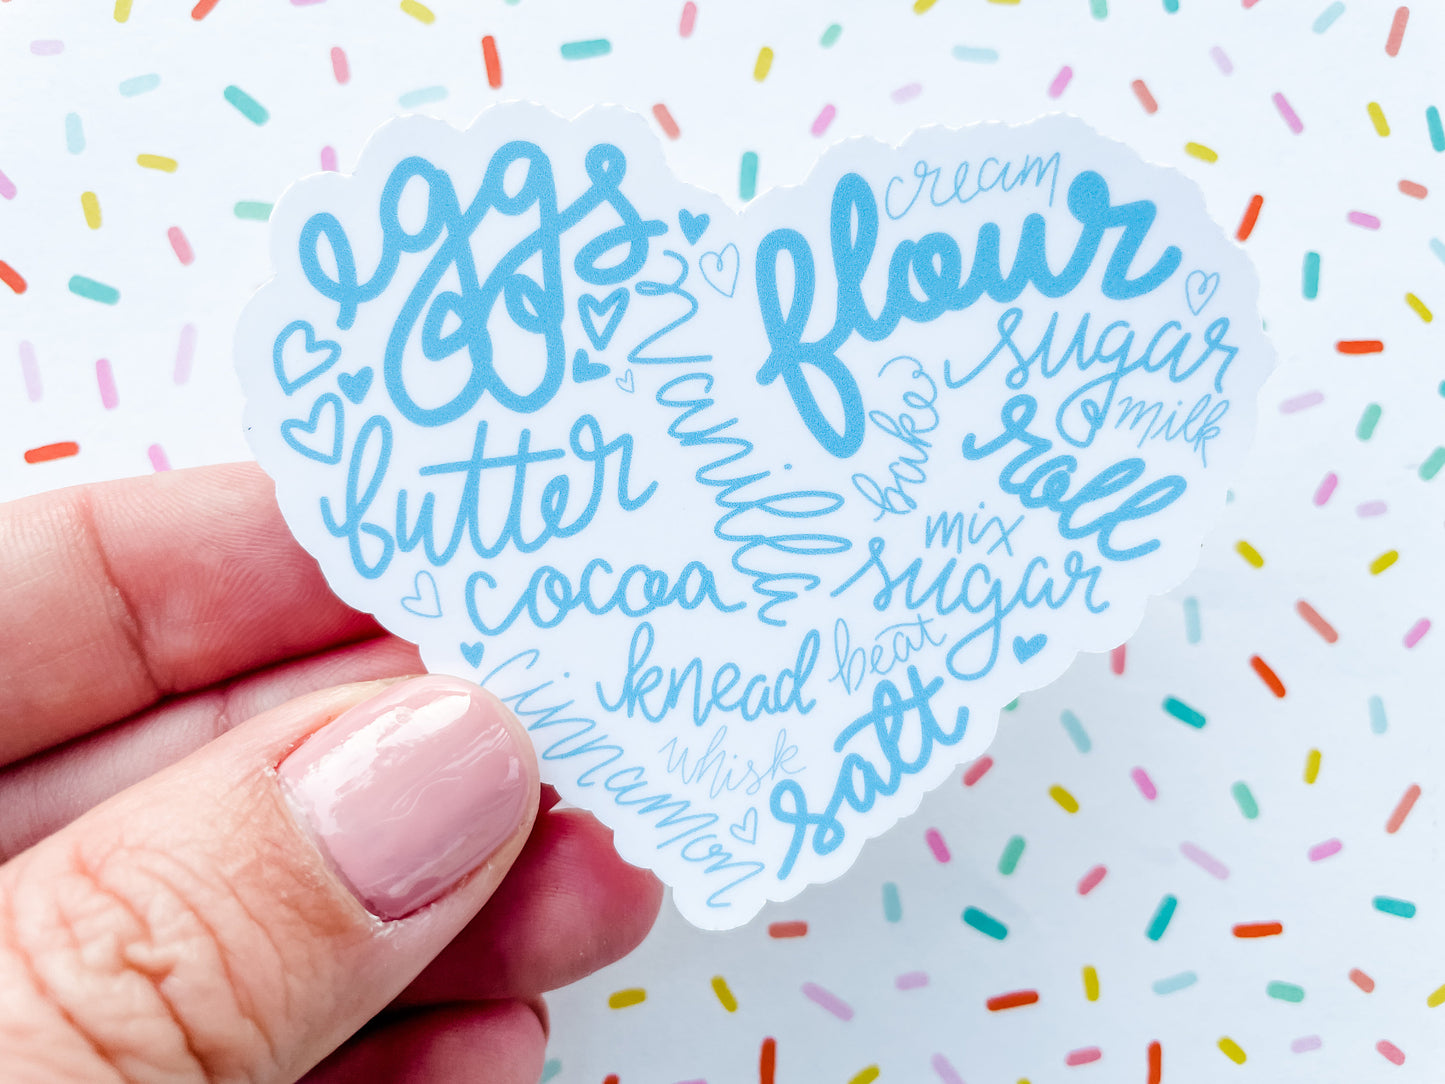 eggs
cream
flour
vanilla
sugar
milk
bake
roll
butter
mix
cocoa
sugar
knead
beat
cinnamon
whisk
salt